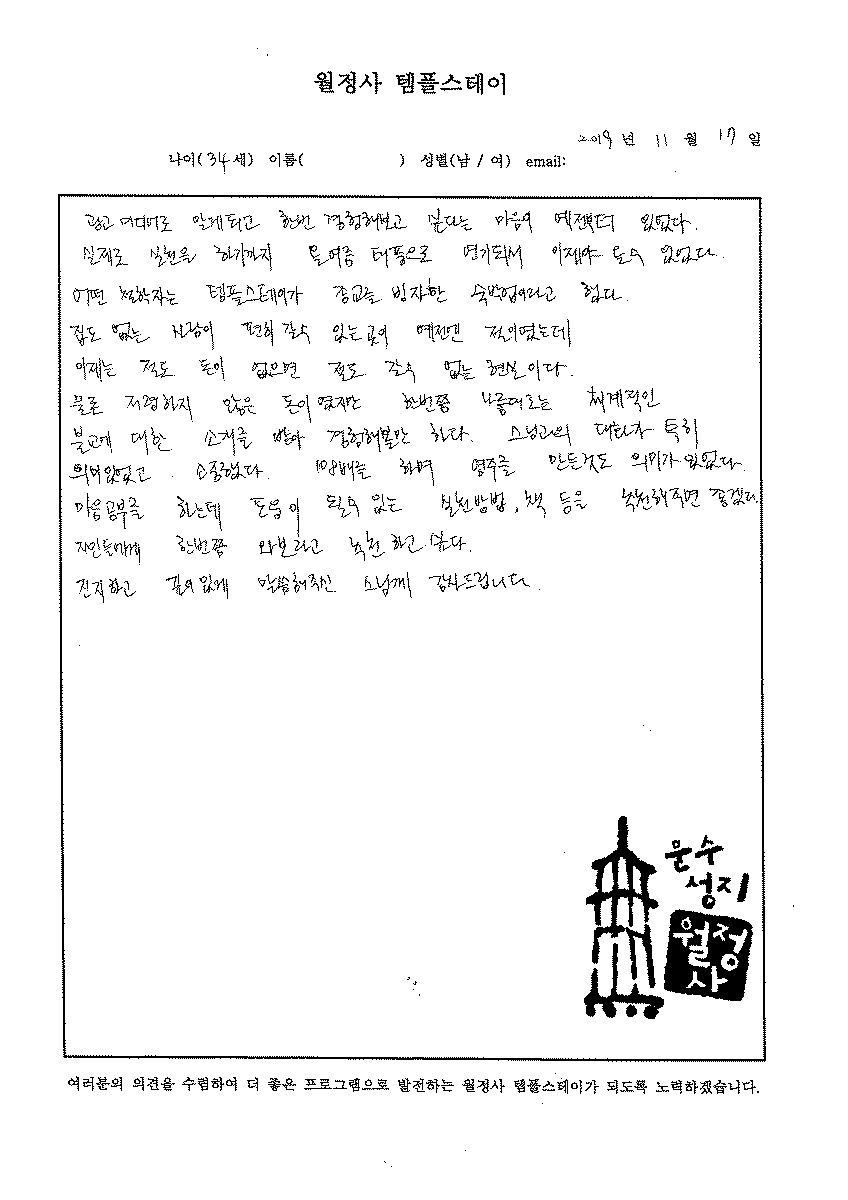 월정사 템플스테이
2019 년 11 월 17 일
나이(34세) 이름( ) 성별(남 / 여) email:
광고 미디어로 알게되고 한번 경험해보고 싶다는 마음이 예전부터 있었다.
실제로 실천을 하기까지 올여름 태풍으로 연기되서 이제야 올수 있었다.
어떤 철학자는 템플스테이가 종교를 빙자한 숙박업이라고 했다.
집도 없는 사람이 편히 갈수 있는곳이 예전엔 절이였는데
이제는 절도 돈이 없으면 절도 갈수 없는 현실이다.
물론 저렴하지 않은 돈이였지만 한번쯤 체계적인
불교에 대한 소개를 받아 경험해볼만 하다. 스님과의 대화가 특히
의미있었고 소중했다. 108배를 하며 염주를 만든것도 의미가 있었다.
마음공부를 하는데 도움이 될수 있는 실천방법, 책 등을 추천해주면 좋겠다.
지인들에게 한번쯤 와보라고 추천 하고 싶다.
진지하고 깊이있게 말씀해주신 스님께 감사드립니다.
문수
성지
월정
사
여러분의 의견을 수렴하여 더 좋은 프로그램으로 발전하는 월정사 템플스테이가 되도록 노력하겠습니다.